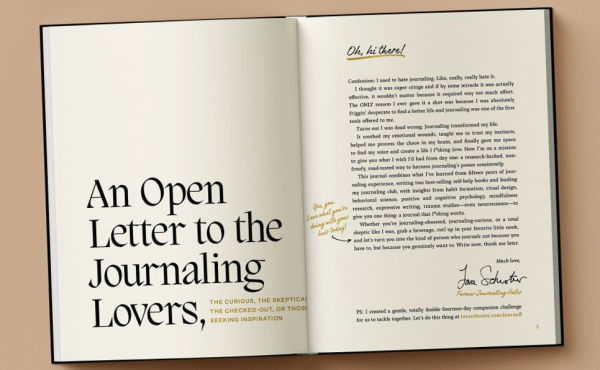 An Open
Letter to the
Journaling
Lovers,
THE CURIOUS, THE SKEPTICAL,
THE CHECKED-OUT, OR THOSE
SEEKING INSPIRATION
Oh, hi there!
Confession: I used to hate journaling. Like, really, really hate it.
I thought it was super cringe and if by some miracle it was actually
effective, it wouldn't matter because it required way too much effort.
The ONLY reason I ever gave it a shot was because I was absolutely
friggin' desperate to find a better life and journaling was one of the first
tools offered to me.
Turns out I was dead wrong. Journaling transformed my life.
It soothed my emotional wounds, taught me to trust my instincts,
helped me process the chaos in my brain, and finally gave me space
to find my voice and create a life I f*cking love. Now I'm on a mission
to give you what I wish I'd had from day one: a research-backed, non-
froofy, road-tested way to harness journaling's power consistently.
This journal combines what I've learned from fifteen years of jour-
naling experience, writing two best-selling self-help books and leading
my journaling club, with insights from habit formation, ritual design,
behavioral science, positive and cognitive psychology, mindfulness
research, expressive writing, trauma studies—even neuroscience—to
give you one thing: a journal that f*cking works.
Whether you're journaling-obsessed, journaling-curious, or a total
skeptic like I was, grab a beverage, curl up in your favorite little nook,
and let's turn you into the kind of person who journals not because you
have to, but because you genuinely want to. Write now, thank me later.
You, you.
Love what you're
doing with your
hair today!
Much love,
Tara Schuster
Former Journaling Hater
PS: I created a gentle, totally doable fourteen-day companion challenge
for us to tackle together. Let's do this thing at taraschuster.com/journal!